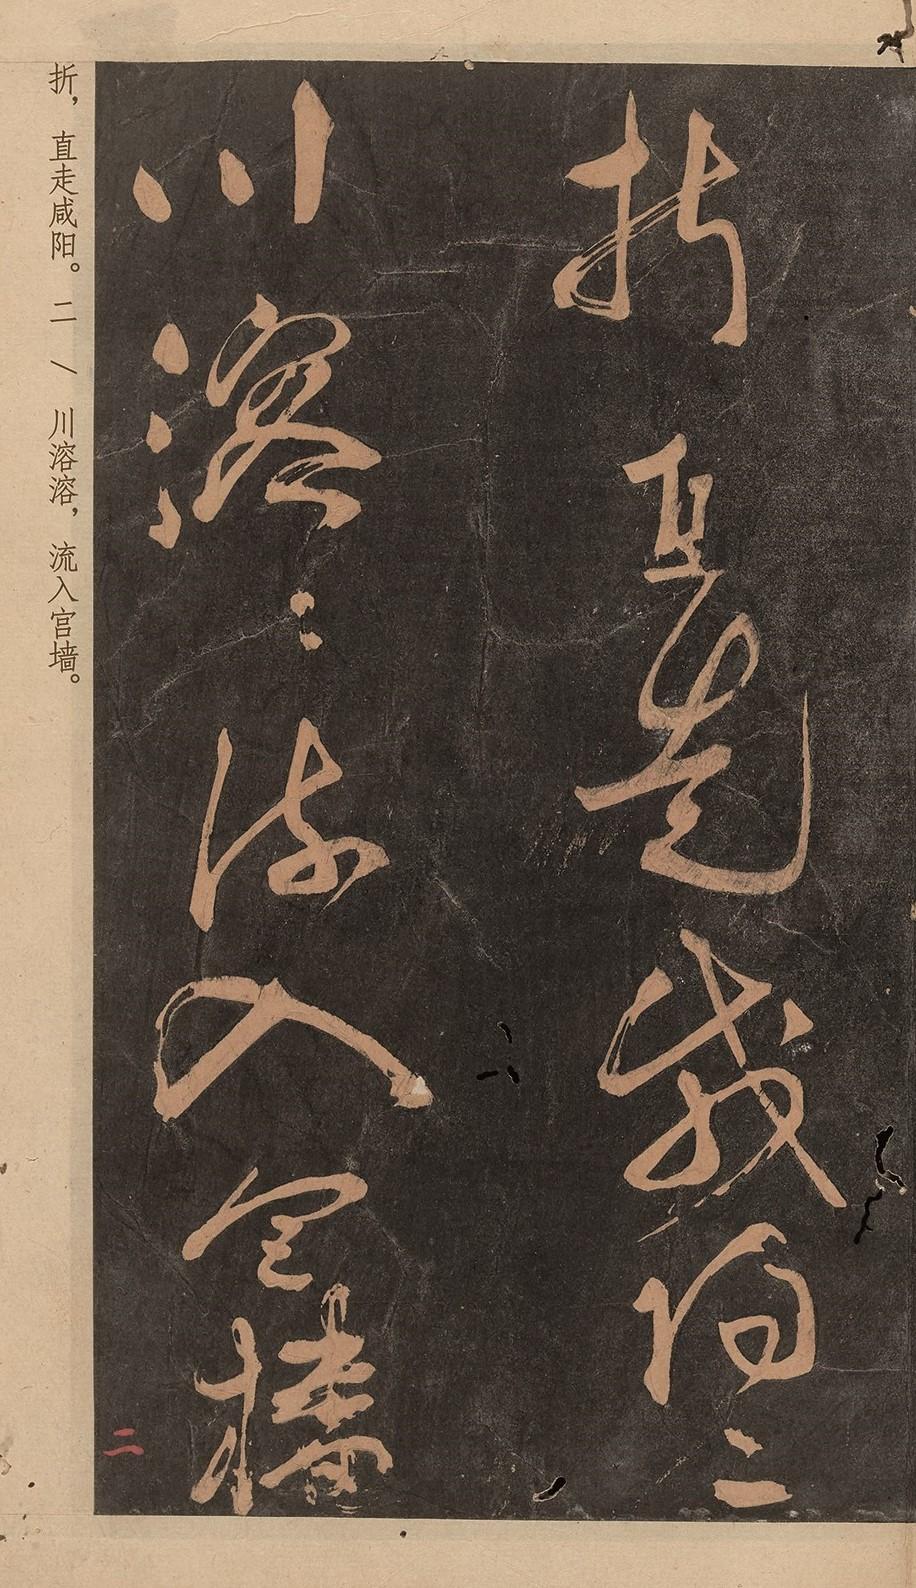 折直走咸阳二
川溶〻流入宫墙
二
折，直走咸阳。二\川溶溶，流入宫墙。